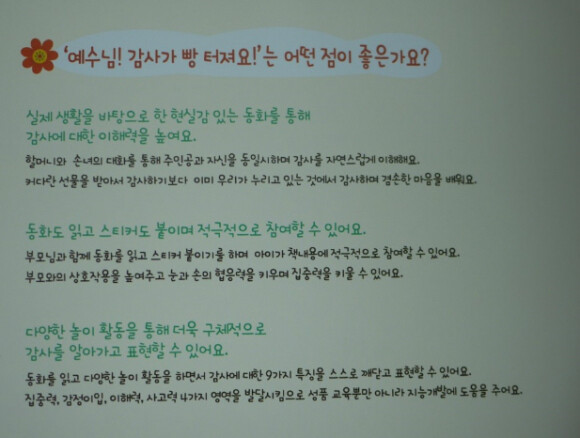 '예수님! 감사가 빵 터져요!'는 어떤 점이 좋은가요?
실제 생활을 바탕으로 한 현실감 있는 동화를 통해
감사에 대한 이해력을 높여요.
할머니와 손녀의 대화를 통해 주인공과 자신을 동일시하며 감사를 자연스럽게 이해해요.
커다란 선물을 받아서 감사하기보다 이미 우리가 누리고 있는 것에서 감사하며 겸손한 마음을 배워요.
동화도 읽고 스티커도 붙이며 적극적으로 참여할 수 있어요.
부모님과 함께 동화를 읽고 스티커 붙이기를 하며 아이가 책내용에 적극적으로 참여할 수 있어요.
부모와의 상호작용을 높여주고 눈과 손의 협응력을 키우며 집중력을 키울 수 있어요.
다양한 놀이 활동을 통해 더욱 구체적으로
감사를 알아가고 표현할 수 있어요.
동화를 읽고 다양한 놀이 활동을 하면서 감사에 대한 9가지 특징을 스스로 깨닫고 표현할 수 있어요.
집중력, 감정이입, 이해력, 사고력 4가지 영역을 발달시킴으로 성품 교육뿐만 아니라 지능개발에 도움을 주어요.